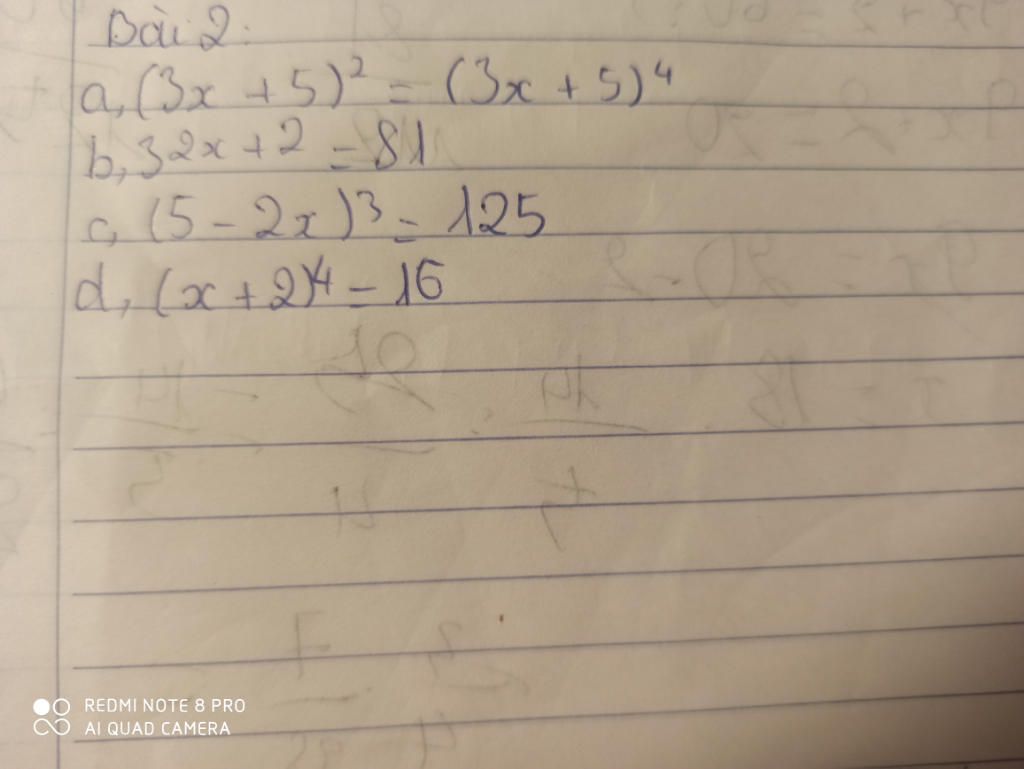 Bài 2:
a, (3x + 5)² = (3x + 5)⁴
b, 3²ˣ⁺² = 81
c, (5 - 2x)³ = 125
d, (x + 2)⁴ = 16
REDMI NOTE 8 PRO
AI QUAD CAMERA